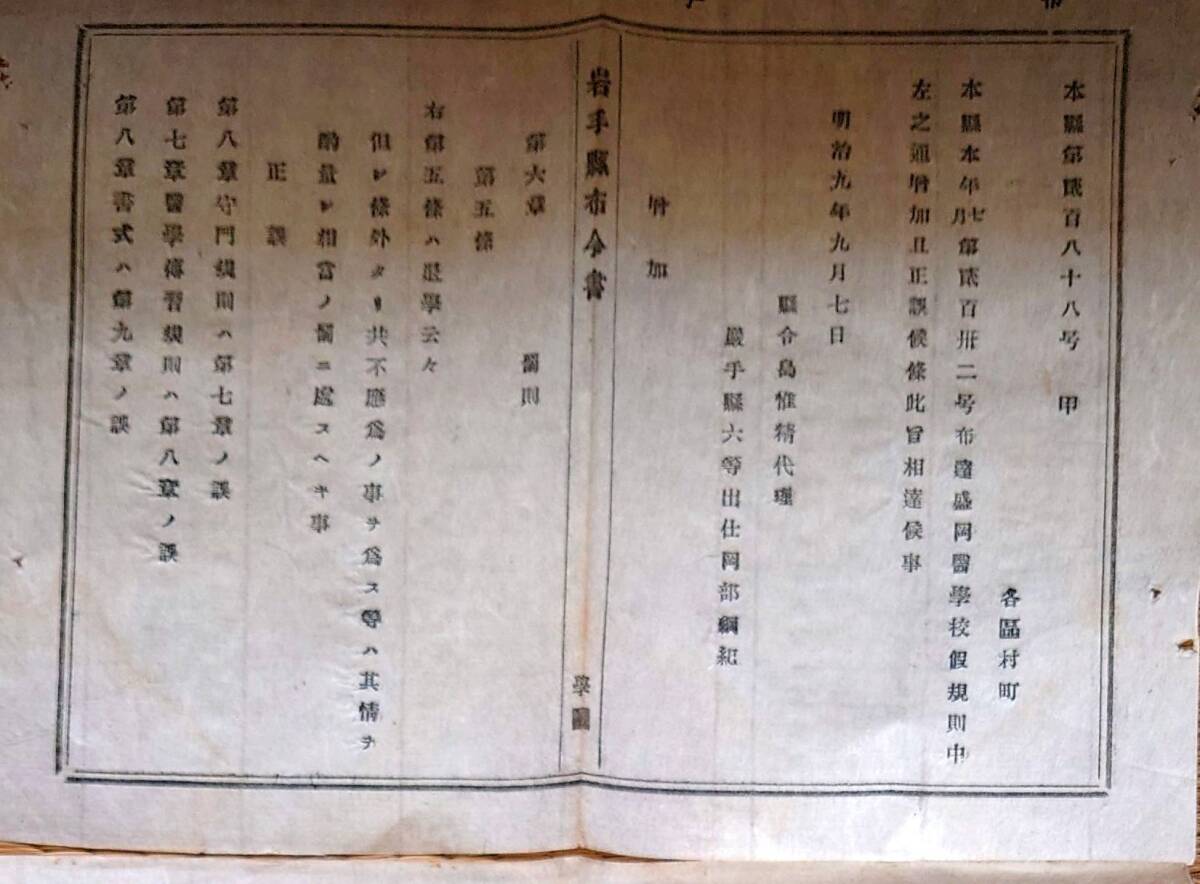 本縣第貳百八十八号　甲
各區村町
本縣本年七月第貳百卅二号布達盛岡醫學校假規則中
左之通增加且正誤候條此旨相達候事
明治九年九月七日
縣令島惟精代理
巖手縣六等出仕岡部綱紀
增加
岩手縣布令書
學
第六章　罰則
第五條
右第五條ハ退學云々
但シ條外タリ共不應爲ノ事ヲ爲ス等ハ其情ヲ
酌量シ相當ノ罰ニ處スヘキ事
正誤
第八章守門規則ハ第七章ノ誤
第七章醫學傳習規則ハ第八章ノ誤
第八章書式ハ第九章ノ誤